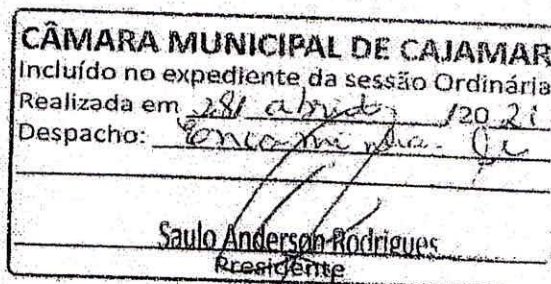 CÂMARA MUNICIPAL DE CAJAMAR
Incluído no expediente da sessão Ordinária
Realizada em 28/ abril /2021
Despacho: Encaminha-
Saulo Anderson Rodrigues
Presidente